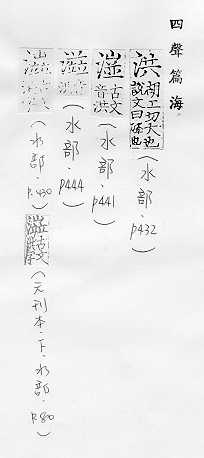 四聲篇海
洪胡工切大也説文曰洚也(水部．p432)
古文音洪(水部．p441)
(水部．p444)
(水部．p.430)
(元刊本．下．水部．p.800)